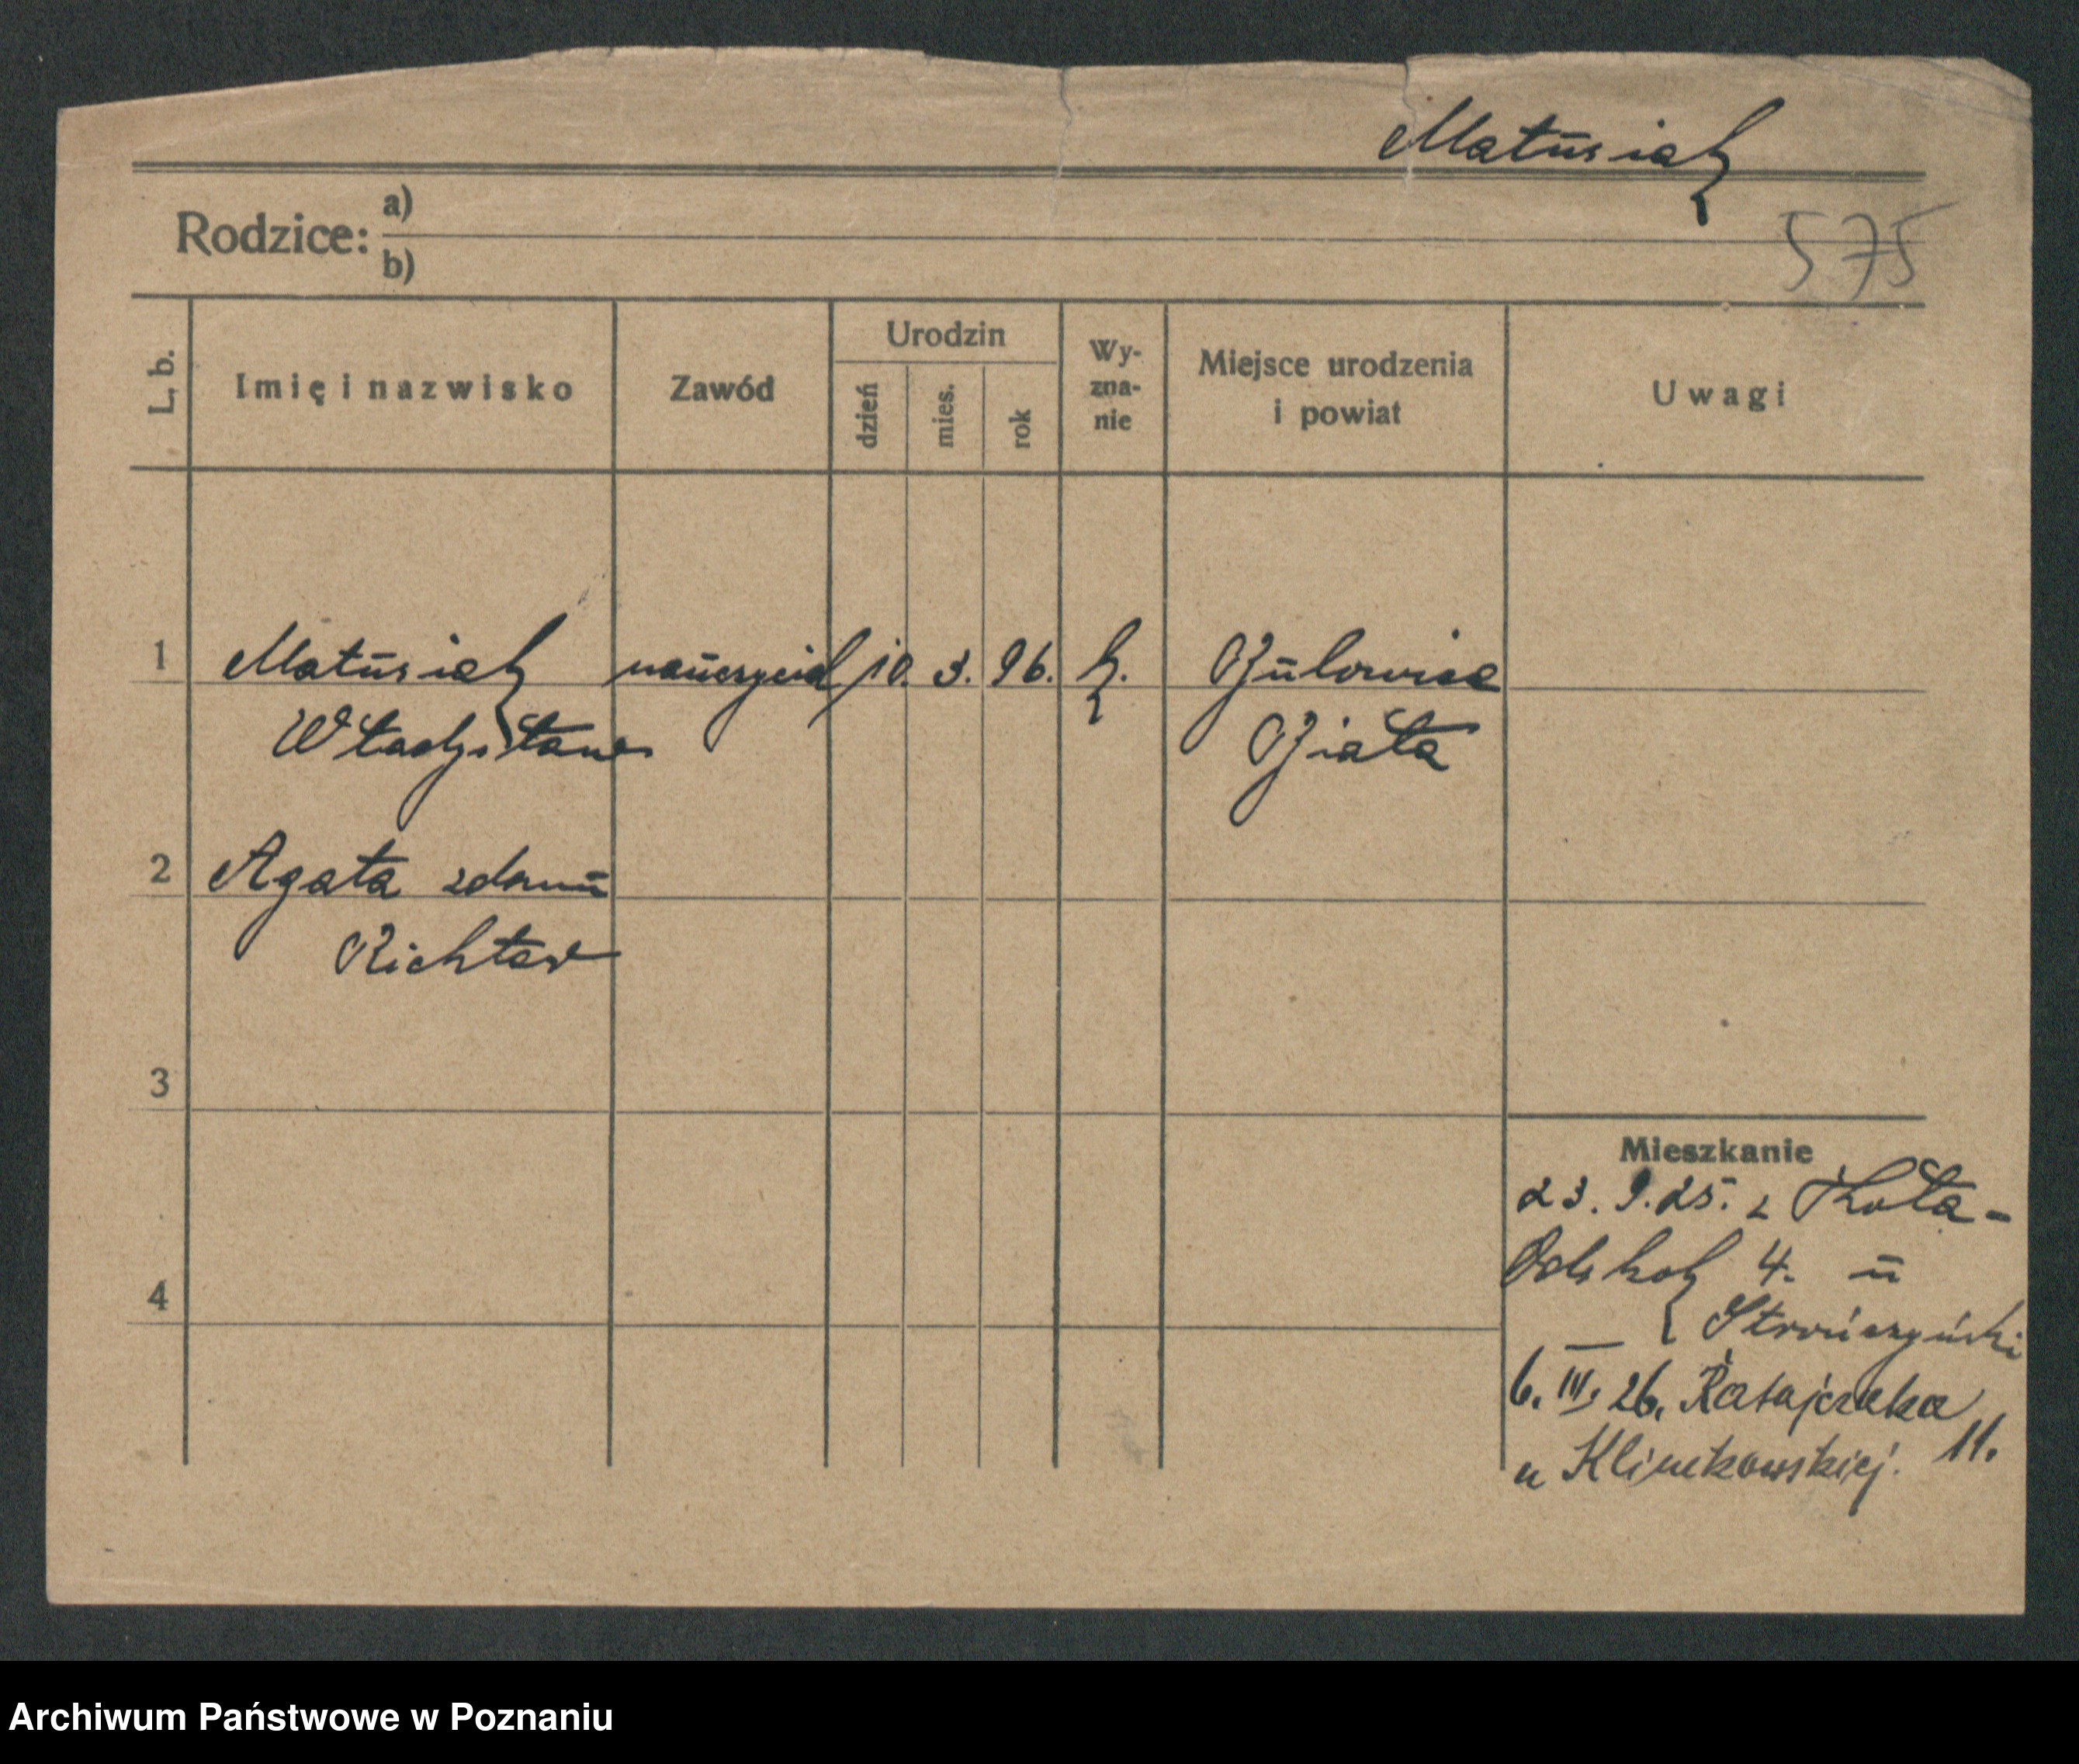 Matusiak
575
Rodzice: a)
b)
L. b. Imię i nazwisko Zawód Urodzin dzień mies. rok Wy-zna-nie Miejsce urodzenia i powiat Uwagi
1 Matusiak nauczyciel 10. 3. 96. k. Bulowice
Władysław Biała
2 Agata z domu
Richter
3
Mieszkanie
23. 9. 25. z
4. u
4
6. III. 26. Ratajczaka
11.
u Klimkowskiej.
Archiwum Państwowe w Poznaniu